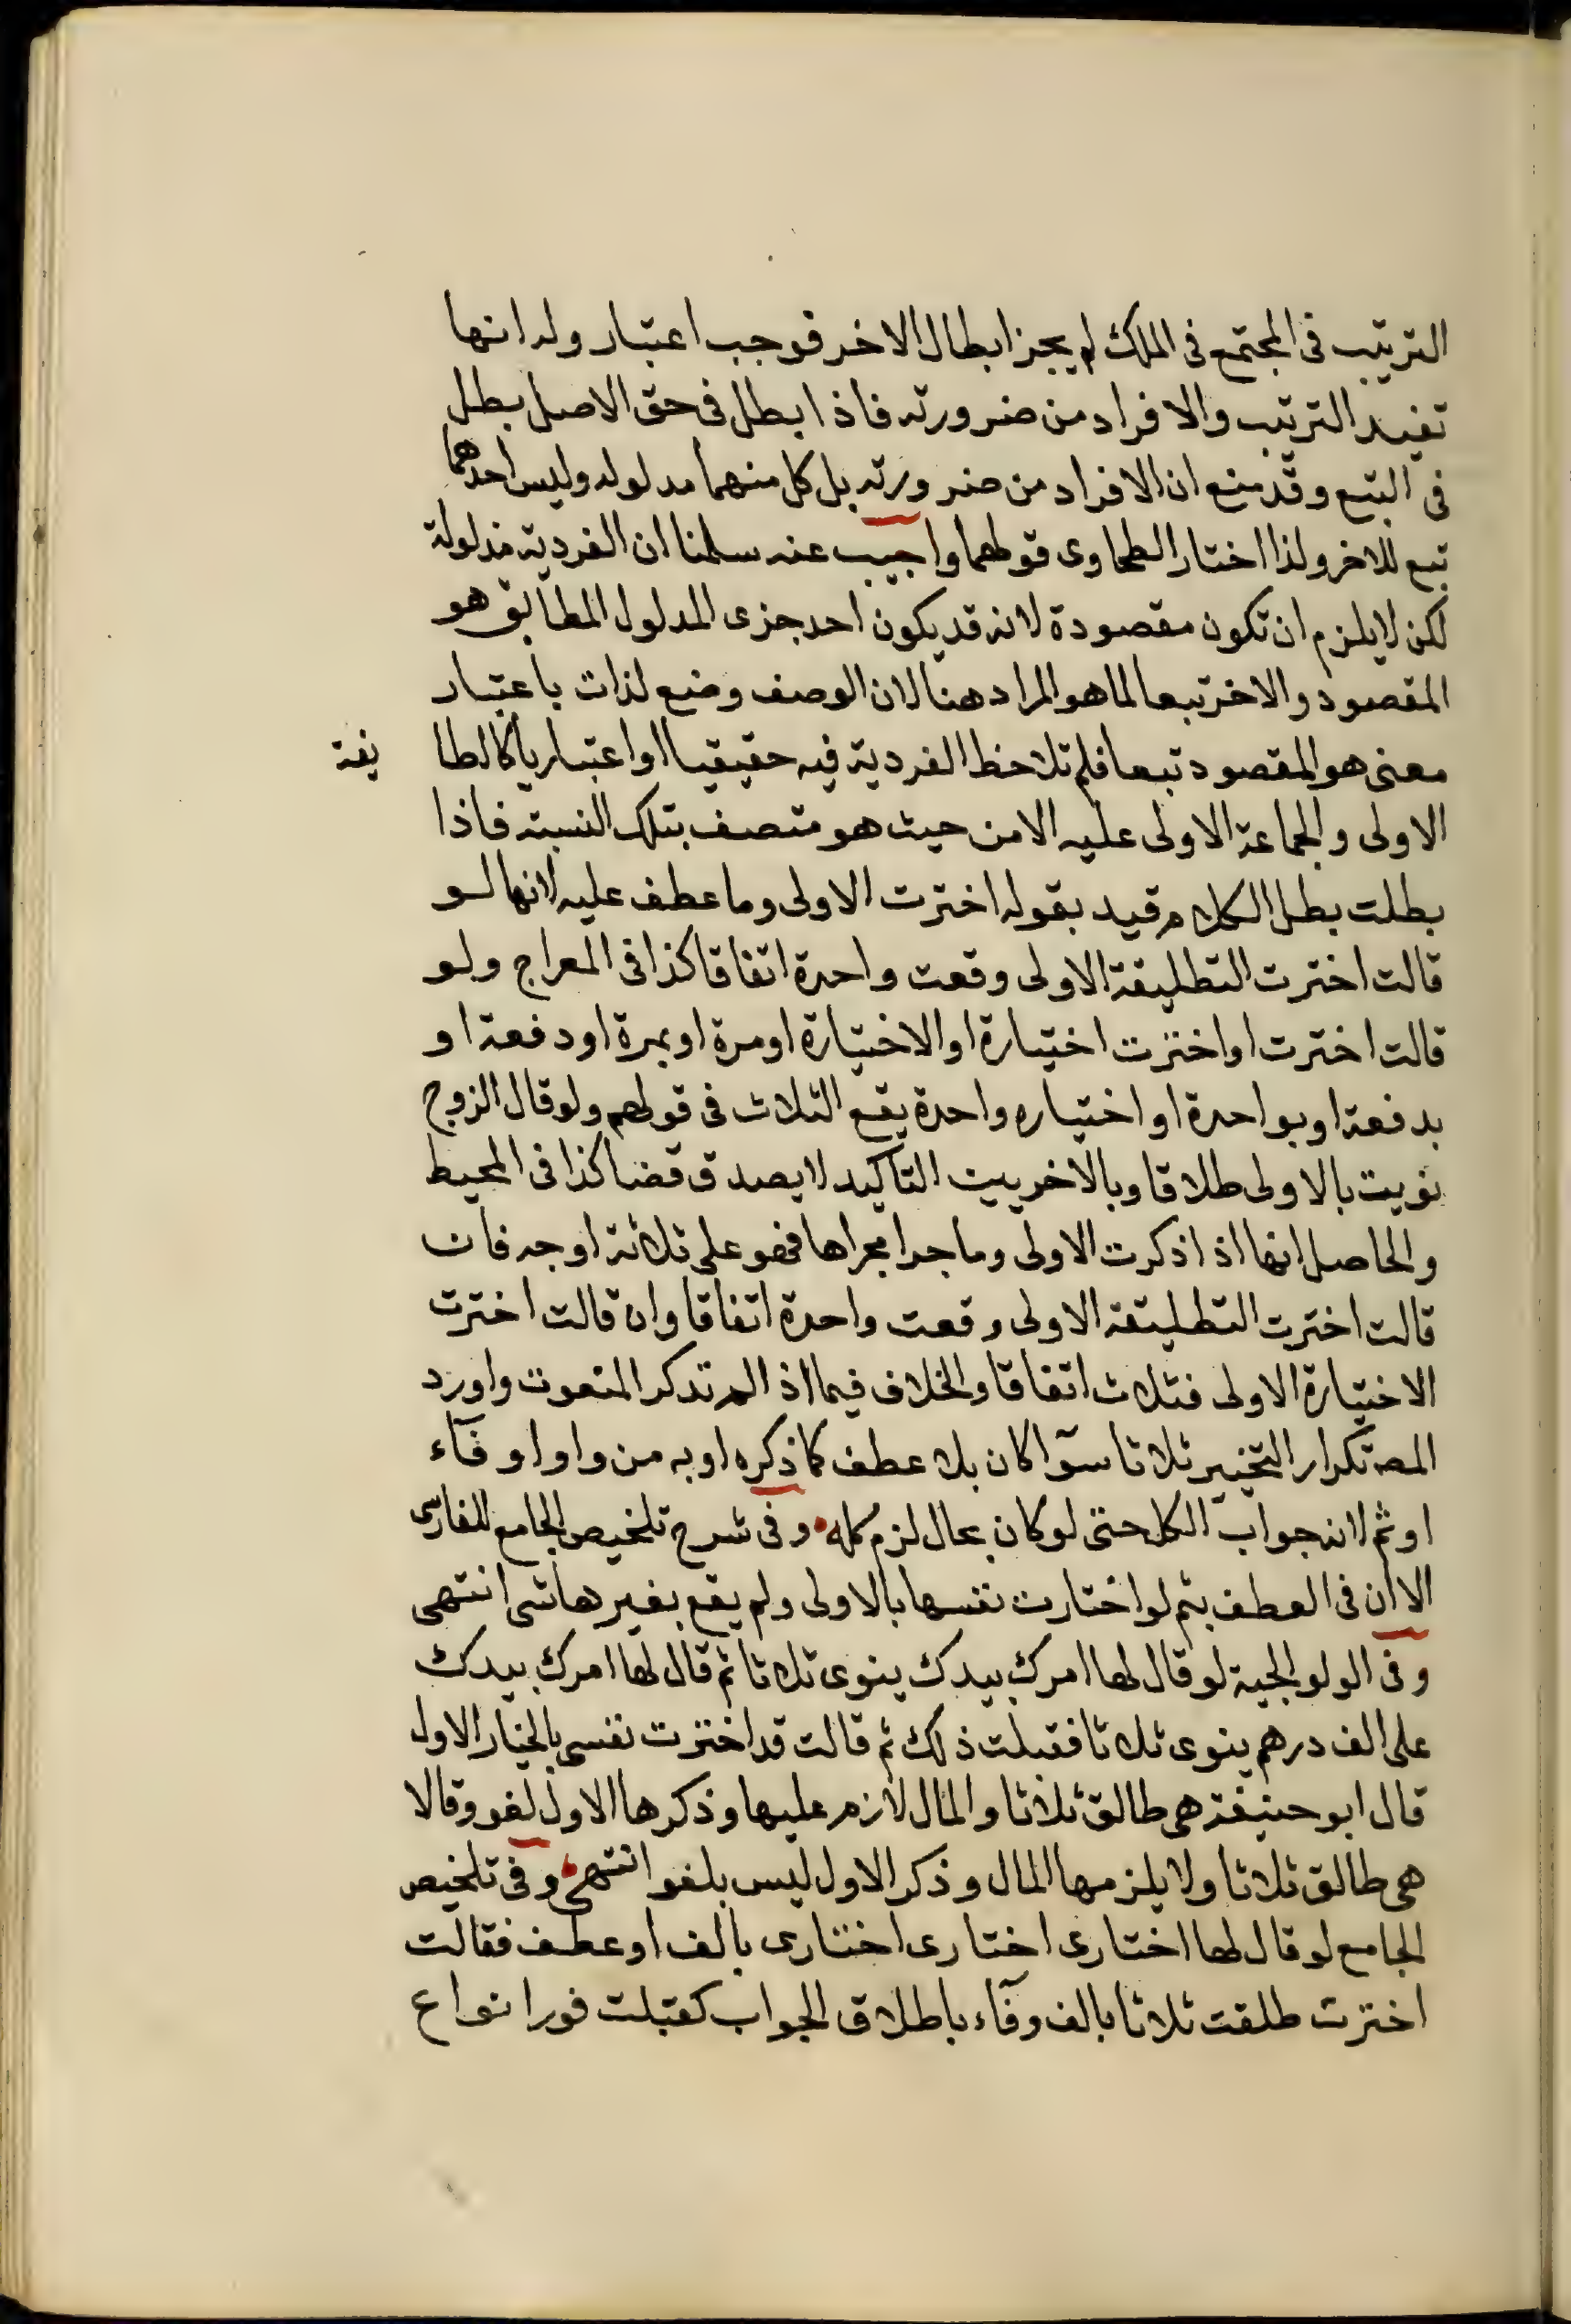 الترتيب فى المجتمع فى الملك لم يجز ابطال الاخر فوجب اعتبار وله انها
تفيد الترتيب والافراد من ضرورته فاذا بطل فى حق الاصل بطل
فى التبع وقد منع ان الافراد من ضرورته بل كل منهما مدلوله وليس احدهما
تبع للاخر ولذا اختار الطحاوى قولهما واجيب عنه سلمنا ان الفردية مدلولة
لكن لا يلزم ان تكون مقصودة لانه قد يكون احد جزى المدلول المطابق هو
المقصود والاخر تبعا لما هو المراد هنا لان الوصف وضع لذات باعتبار
معنى هو المقصود تبعا فلم تلاحظ الفردية فيه حقيقيا او اعتباريا كالطا يفة
الاولى والجماعة الاولى عليه الا من حيث هو متصف بتلك النسبة فاذا
بطلت بطل الكلام قيد بقوله اخترت الاولى وما عطف عليه لانها لو
قالت اخترت التطليقة الاولى وقعت واحدة اتفاقا كذا فى المعراج ولو
قالت اخترت او اخترت اختيارة او الاختيارة او مرة او بمرة او دفعة او
بدفعة او بواحدة او اختياره واحدة يقع الثلاث فى قولهم ولو قال الزوج
نويت بالاولى طلاقا وبالاخريين التاكيد لا يصدق قضا كذا فى المحيط
والحاصل انها اذا ذكرت الاولى وما جرا مجراها فهو على ثلاثة اوجه فان
قالت اخترت التطليقة الاولى وقعت واحدة اتفاقا وان قالت اخترت
الاختيارة الاولى فثلاث اتفاقا والخلاف فيما اذا لم تذكر المنعوت واورد
المصـ تكرار التخيير ثلاثا سوآ كان بلا عطف كما ذكره او به من واو او فآء
او ثم لانه جواب الكل حتى لو كان بمال لزم كله وفى شرح تلخيص الجامع للفارسى
الا ان فى العطف بثم لو اختارت نفسها بالاولى ولم يقع بغيرها شى انتهى
وفى الولوالجية لو قال لها امرك بيدك ينوى ثلاثا ثم قال لها امرك بيدك
على الف درهم ينوى ثلاثا فقبلت ذلك ثم قالت قد اخترت نفسى بالخيار الاول
قال ابو حنيفة هى طالق ثلاثا والمال لازم عليها وذكرها الاول لغو وقالا
هى طالق ثلاثا ولا يلزمها المال وذكر الاول ليس بلغو انتهى وفى تلخيص
الجامع لو قال لها اختارى اختارى اختارى بالف او عطف فقالت
اخترت طلقت ثلاثا بالف وفآء باطلاق الجواب كقبلت فورا نواع